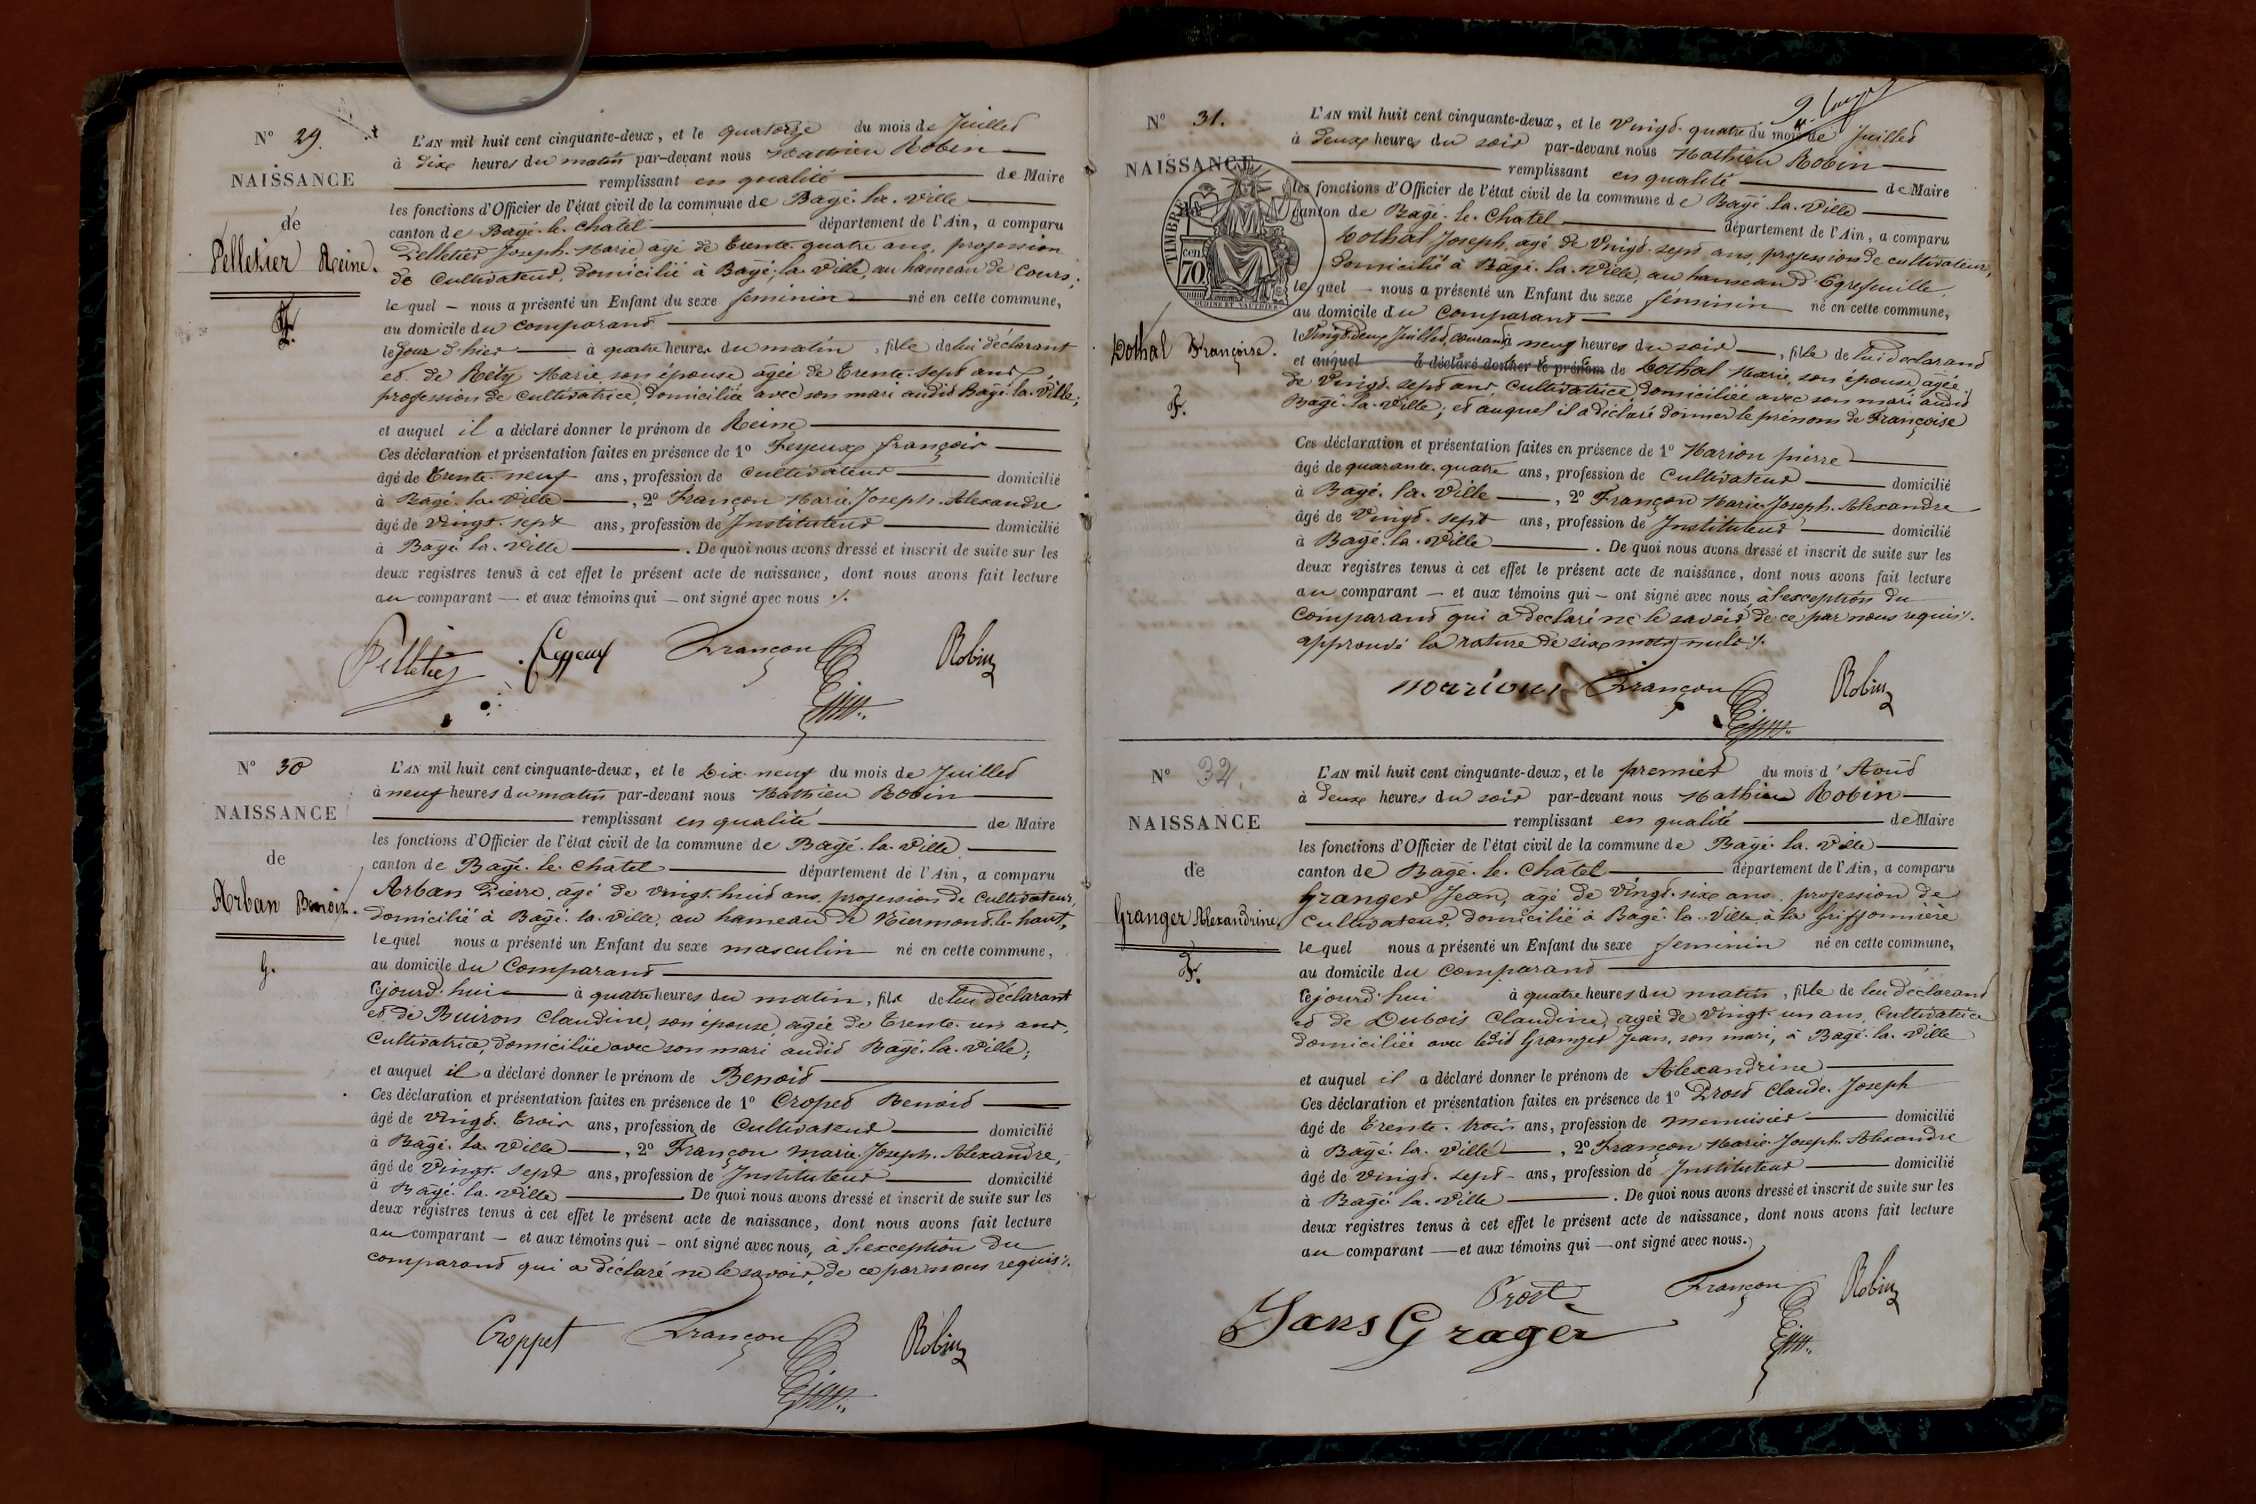 N° 29.
NAISSANCE
de
Pelletier Reine.
F.
L'AN mil huit cent cinquante-deux, et le quatorze du mois de Juillet
à dix heures du matin par-devant nous Mathieu Robin
remplissant en qualité de Maire
les fonctions d'Officier de l'état civil de la commune de Bagé-la-ville
canton de Bagé-le-Chatel département de l'Ain, a comparu
Pelletier Joseph-Marie agé de trente-quatre ans, profession
de Cultivateur, domicilié à Bagé-la-Ville, au hameau de Cours;
le quel nous a présenté un Enfant du sexe feminin né en cette commune,
au domicile du comparant
le jour d'hier à quatre heures du matin, fille de lui déclarant
et de Réty Marie, son épouse agée de trente-sept ans,
profession de cultivatrice, domiciliée avec son mari audit Bagé-la-Ville;
et auquel il a déclaré donner le prénom de Reine
Ces déclaration et présentation faites en présence de 1° Feyeux françois
âgé de trente-neuf ans, profession de cultivateur domicilié
à Bagé-la-Ville, 2° Françon Marie-Joseph-Alexandre
âgé de vingt-sept ans, profession de Instituteur domicilié
à Bagé-la-Ville. De quoi nous avons dressé et inscrit de suite sur les
deux registres tenus à cet effet le présent acte de naissance, dont nous avons fait lecture
au comparant et aux témoins qui ont signé avec nous ./.
Pelletier Feyeux Françon Robin
N° 30
NAISSANCE
de
Arban Benoit.
G.
L'AN mil huit cent cinquante-deux, et le Dix-neuf du mois de Juillet
à neuf heures du matin par-devant nous Mathieu Robin
remplissant en qualité de Maire
les fonctions d'Officier de l'état civil de la commune de Bagé-la-Ville
canton de Bagé-le-Châtel département de l'Ain, a comparu
Arban Pierre, âgé de vingt-huit ans, profession de Cultivateur,
domicilié à Bagé-la-Ville, au hameau de Niermond-le-haut,
lequel nous a présenté un Enfant du sexe masculin né en cette commune,
au domicile du Comparant
cejourd'hui à quatre heures du matin, fils de lui déclarant
et de Buiron Claudine, son épouse, agée de trente-un ans,
Cultivatrice, domiciliée avec son mari audit Bagé-la-Ville;
et auquel il a déclaré donner le prénom de Benoit
Ces déclaration et présentation faites en présence de 1° Cropet Benoit
âgé de vingt-trois ans, profession de Cultivateur domicilié
à Bagé-la-Ville, 2° Françon Marie-Joseph-Alexandre,
âgé de vingt-sept ans, profession de Instituteur domicilié
à Bagé-la-Ville. De quoi nous avons dressé et inscrit de suite sur les
deux registres tenus à cet effet le présent acte de naissance, dont nous avons fait lecture
au comparant et aux témoins qui ont signé avec nous, à l'exception du
comparant qui a déclaré ne le savoir, de ce par nous requis ./.
Croppet Françon Robin
N° 31.
NAISSANCE
TIMBRE
cen. 70
OUDINE ET VAUTHIER
Lothal Françoise.
F.
L'AN mil huit cent cinquante-deux, et le Vingt-quatre du mois de Juillet
à deux heures du soir par-devant nous Mathieu Robin
remplissant en qualité de Maire
les fonctions d'Officier de l'état civil de la commune de Bagé-la-Ville
canton de Bagé-le-Chatel département de l'Ain, a comparu
Lothal Joseph, agé de Vingt-sept ans, profession de cultivateur,
domicilié à Bagé-la-Ville, au hameau d'Egrefeuille,
le quel nous a présenté un Enfant du sexe féminin né en cette commune,
au domicile du Comparant
le Vingt-deux Juillet courant à neuf heures du soir, fille de lui déclarant
et auquel a déclaré donner le prénom de Lothal Marie, son épouse, agée
de Vingt-sept ans, Cultivatrice, domiciliée avec son mari audit
Bagé-la-Ville; et auquel il a déclaré donner le prénom de Françoise
Ces déclaration et présentation faites en présence de 1° Marion pierre
âgé de quarante-quatre ans, profession de Cultivateur domicilié
à Bagé-la-Ville, 2° Françon Marie-Joseph-Alexandre
âgé de Vingt-sept ans, profession de Instituteur domicilié
à Bagé-la-Ville. De quoi nous avons dressé et inscrit de suite sur les
deux registres tenus à cet effet le présent acte de naissance, dont nous avons fait lecture
au comparant et aux témoins qui ont signé avec nous, à l'exception du
Comparant qui a déclaré ne le savoir, de ce par nous requis ./.
approuvé la rature de six mots nuls ./.
marion Françon Robin
N° 32.
NAISSANCE
de
Granger Alexandrine.
F.
L'AN mil huit cent cinquante-deux, et le premier du mois d'Août
à deux heures du soir par-devant nous Mathieu Robin
remplissant en qualité de Maire
les fonctions d'Officier de l'état civil de la commune de Bagé-la-Ville
canton de Bagé-le-Châtel département de l'Ain, a comparu
Granger Jean, âgé de Vingt-six ans, profession de
Cultivateur, domicilié à Bagé-la-Ville, à la Griffonnière
lequel nous a présenté un Enfant du sexe feminin né en cette commune,
au domicile du comparant
cejourd'hui à quatre heures du matin, fille de lui déclarant
et de Dubois Claudine, agée de vingt-un ans, Cultivatrice
domiciliée avec ledit Granger Jean, son mari, à Bagé-la-Ville
et auquel il a déclaré donner le prénom de Alexandrine
Ces déclaration et présentation faites en présence de 1° Prost Claude-Joseph
âgé de trente-trois ans, profession de menuisier domicilié
à Bagé-la-Ville, 2° Françon Marie-Joseph-Alexandre
âgé de vingt-sept ans, profession de Instituteur domicilié
à Bagé-la-Ville. De quoi nous avons dressé et inscrit de suite sur les
deux registres tenus à cet effet le présent acte de naissance, dont nous avons fait lecture
au comparant et aux témoins qui ont signé avec nous.
Prost Françon Robin
Jans Grager